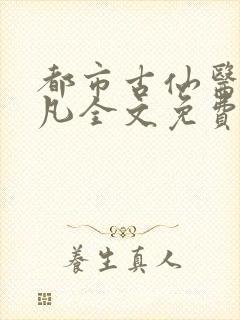 都市古仙醫
凡全文免費
養生真人